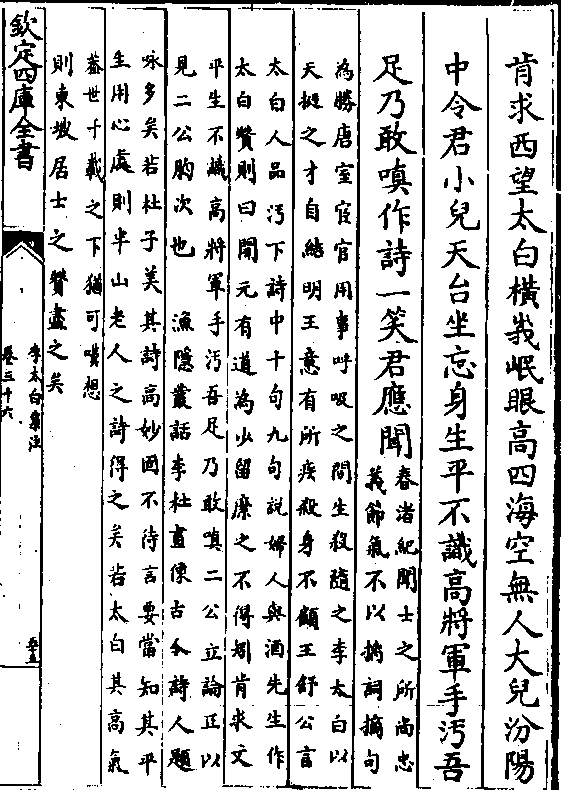 肯求西望太白横峩岷眼高四海空無人大兒汾陽
中令君小兒天台坐忘身生平不識高將軍手汚吾
足乃敢嗔作詩一笑君應聞
春渚紀聞士之所尚忠
義節氣不以摛詞摘句
為勝唐室宦官用事呼吸之間生殺隨之李太白以
天挺之才自結明主意有所疾殺身不顧王舒公言
太白人品汚下詩中十句九句說婦人與酒先生作
太白贊則曰開元有道為少留縻之不得矧肯求文
平生不識高將軍手汚吾足乃敢嗔二公立論正以
見二公胸次也 漁隱叢話李杜畫像古今詩人題
咏多矣若杜子美其詩高妙固不待言要當知其平
生用心處則半山老人之詩得之矣若太白其高氣
葢世千載之下猶可嘆想
則東坡居士之贊盡之矣
欽定四庫全書
李太白集注
卷三十六